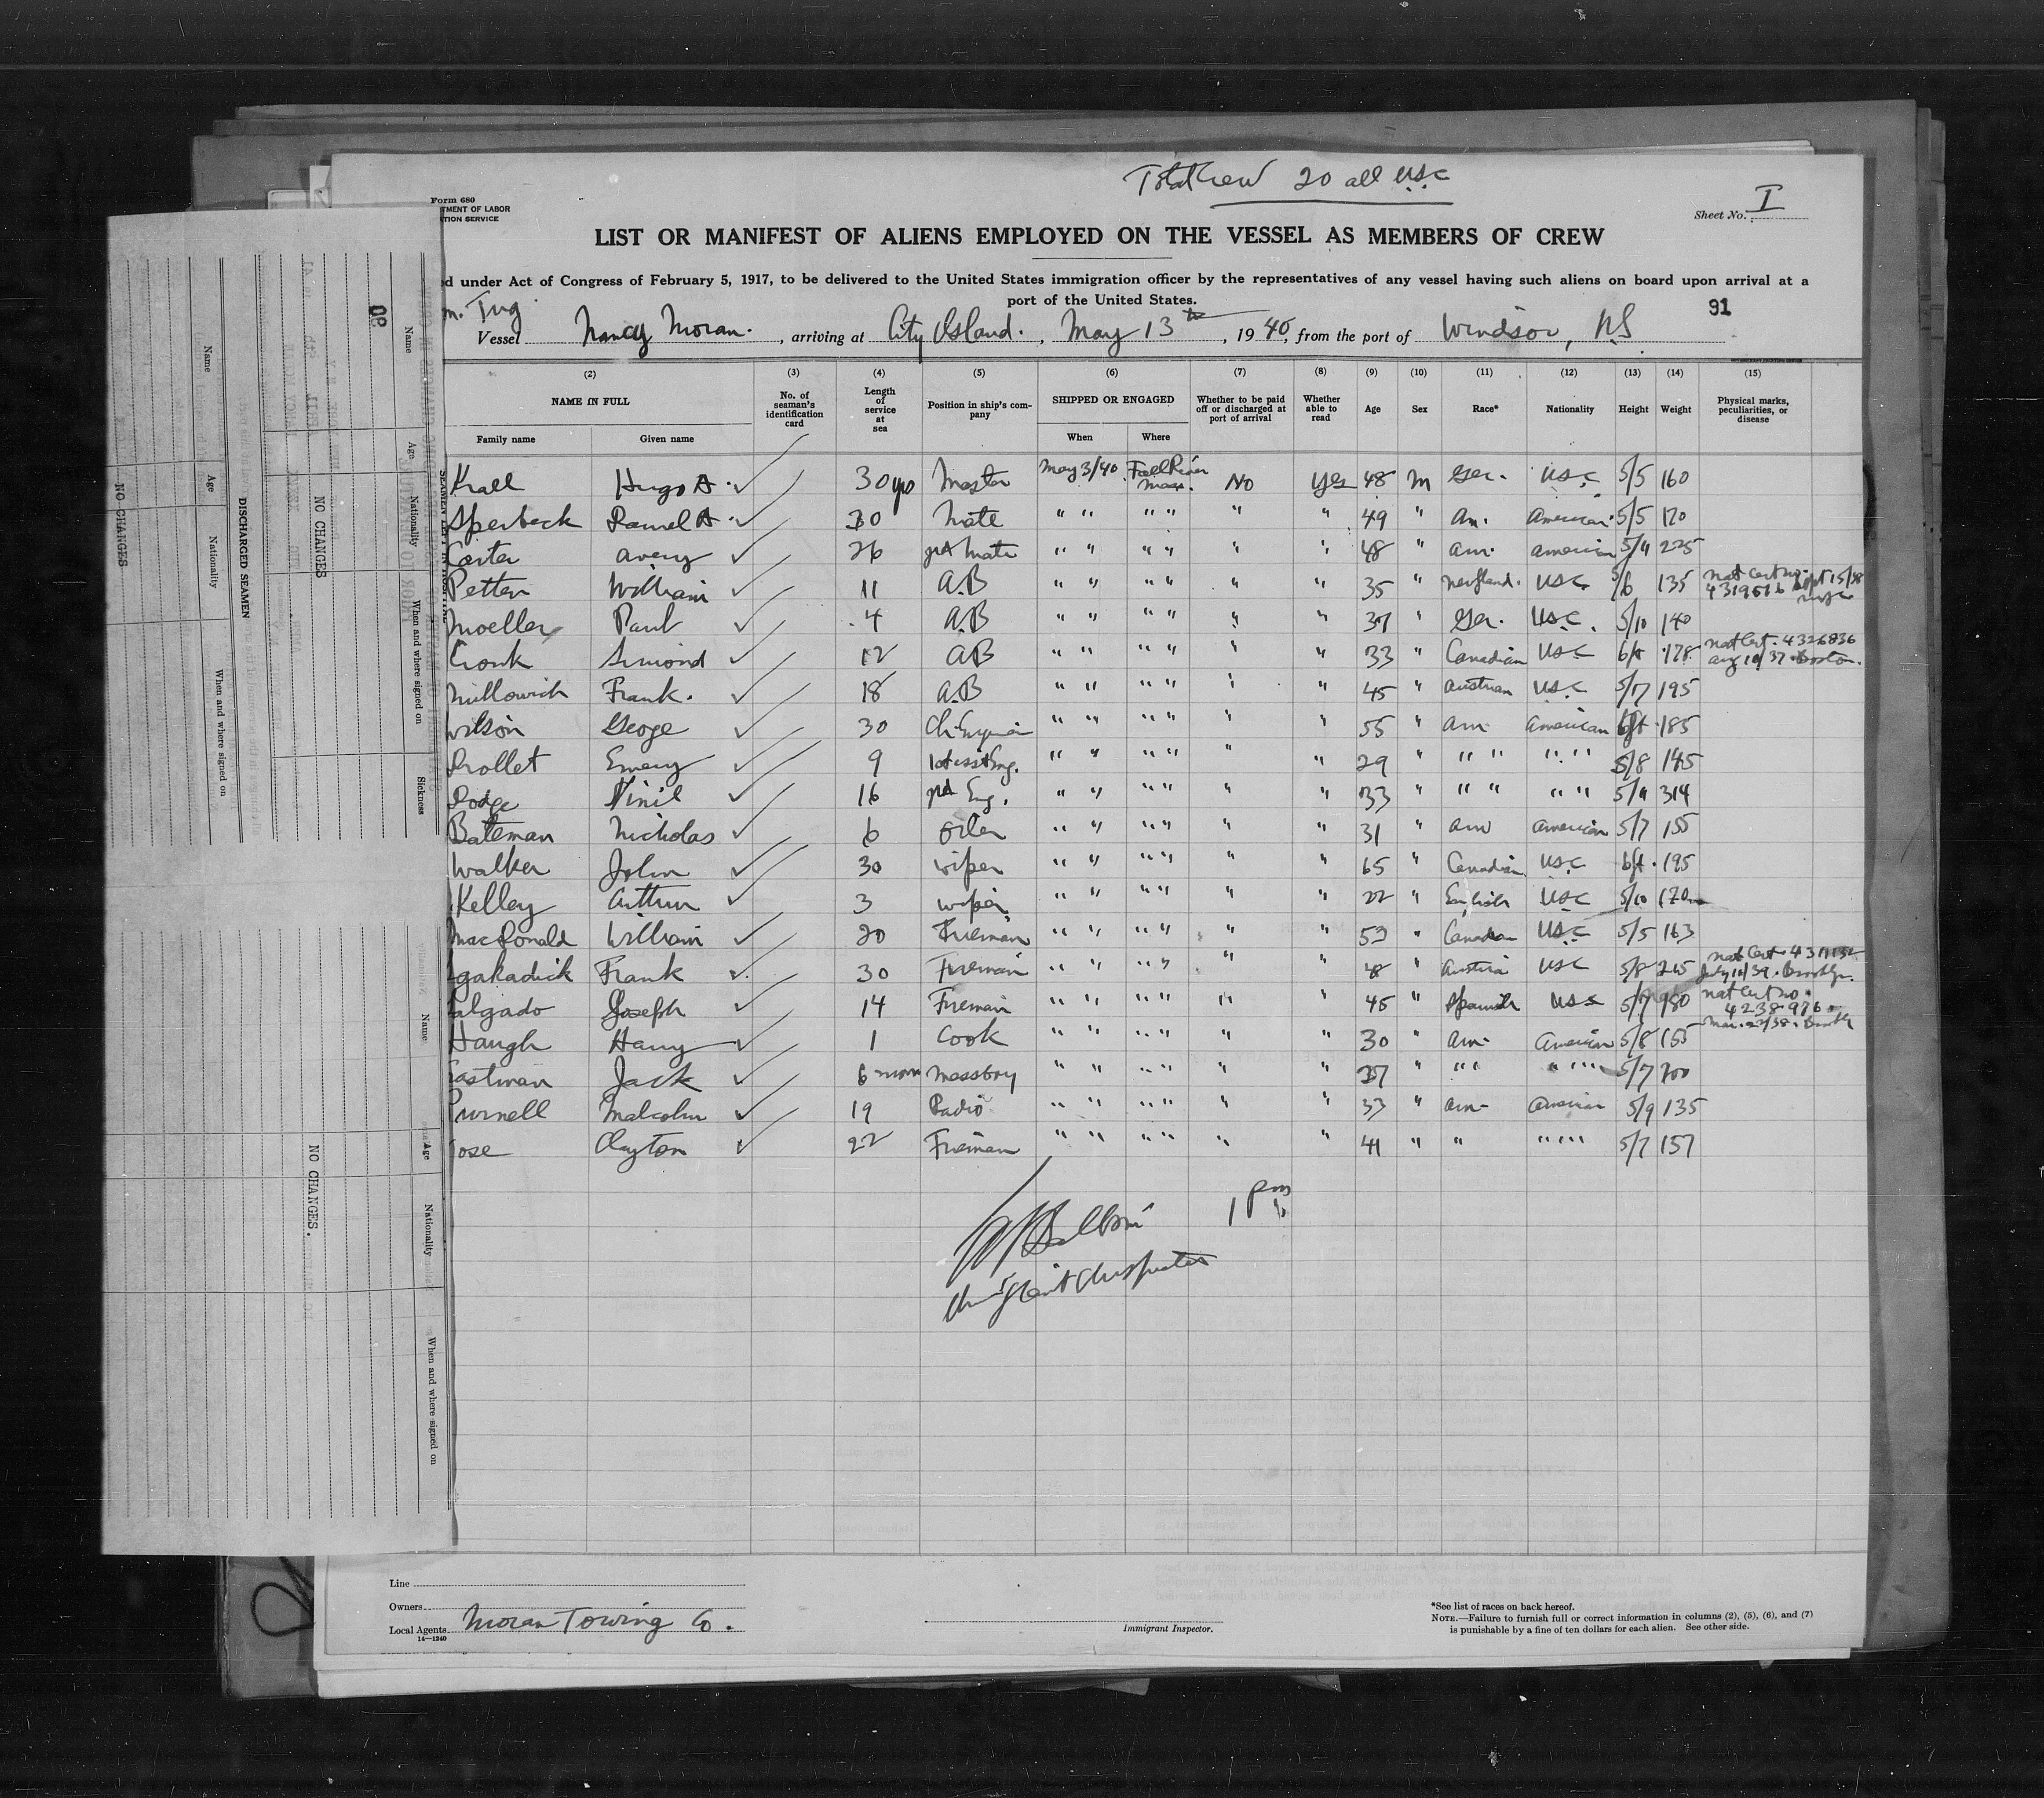 Total Crew 20 all U.S.C
Form 680
TMENT OF LABOR
ATION SERVICE
Sheet No. I
LIST OR MANIFEST OF ALIENS EMPLOYED ON THE VESSEL AS MEMBERS OF CREW
ed under Act of Congress of February 5, 1917, to be delivered to the United States immigration officer by the representatives of any vessel having such aliens on board upon arrival at a
port of the United States.
91
m. Tug
Vessel Nancy Moran. , arriving at City Island. , May 13th , 1940, from the port of Windsor, NS
(2) (3) (4) (5) (6) (7) (8) (9) (10) (11) (12) (13) (14) (15)
NAME IN FULL No. of seaman's identification card Length of service at sea Position in ship's company SHIPPED OR ENGAGED Whether to be paid off or discharged at port of arrival Whether able to read Age Sex Race* Nationality Height Weight Physical marks, peculiarities, or disease
Family name Given name When Where
Krall Hugo A. 30 yrs Master May 3/40 Fall River Mass. No Yes 48 m Ger. USC 5/5 160
Sperbeck Daniel A. 30 Mate " " " " " " 49 " Am. American 5/5 170
Carter Avery 26 Mate " " " " " " 48 " Am. American 5/11 225
Petten William 11 A.B " " " " " " 35 " Newfland. USC 5/6 135 Nat Cert no. 4319516 Sept 15/38
Moeller Paul 4 A.B " " " " " " 37 " Ger. USC. 5/10 140
Cronk Simond 12 AB " " " " " " 33 " Canadian USC 6ft 178 Nat Cert. 4326836 Aug 10/37. Boston.
Millowich Frank. 18 A.B " " " " " " 45 " Austrian USC 5/7 195
Wilson George 30 Ch. Engineer " " " " " " 55 " Am. American 6ft 185
Drollet Emery 9 1st Asst Eng. " " " " " " 29 " " " " " 5/8 145
Dodge 16 Eng. " " " " " " 33 " " " " " 5/11 314
Bateman Nicholas 6 Oiler " " " " " " 31 " Am American 5/7 155
Walker John 30 Wiper " " " " " " 65 " Canadian USC 6ft. 195
Kelley Arthur 3 Wiper " " " " " " 22 " English USC 5/10 170
MacDonald William 20 Fireman " " " " " " 52 " Canadian USC 5/5 163
gakadick Frank 30 Fireman " " " " " " 48 " Austria USC 5/8 215 Nat Cert. July 10/39. Brooklyn.
algado Joseph 14 Fireman " " " " " " 45 " Spanish USC 5/7 180 Nat Cert no. 4238976 Mar. 22/38.
Haugh Harry 1 Cook " " " " " " 30 " Am. American 5/8 155
astman Jack 6 Messboy " " " " " " 27 " " " " " " 5/7 200
Purnell Malcolm 19 Radio " " " " " " 33 " Am. American 5/9 135
ose Clayton 22 Fireman " " " " " " 41 " " " " " 5/7 157
1 Pm
Immigrant Inspector
Line
Owners
Local Agents Moran Towing Co.
14—1240
Immigrant Inspector.
*See list of races on back hereof.
NOTE.—Failure to furnish full or correct information in columns (2), (5), (6), and (7)
is punishable by a fine of ten dollars for each alien. See other side.
90
Name
Age
Nationality
When and where signed on
Sickness
NO CHANGES
DISCHARGED SEAMEN
Name
Age
Nationality
When and where signed on
NO CHANGES
Name
Age
Nationality
When and where signed on
NO CHANGES.